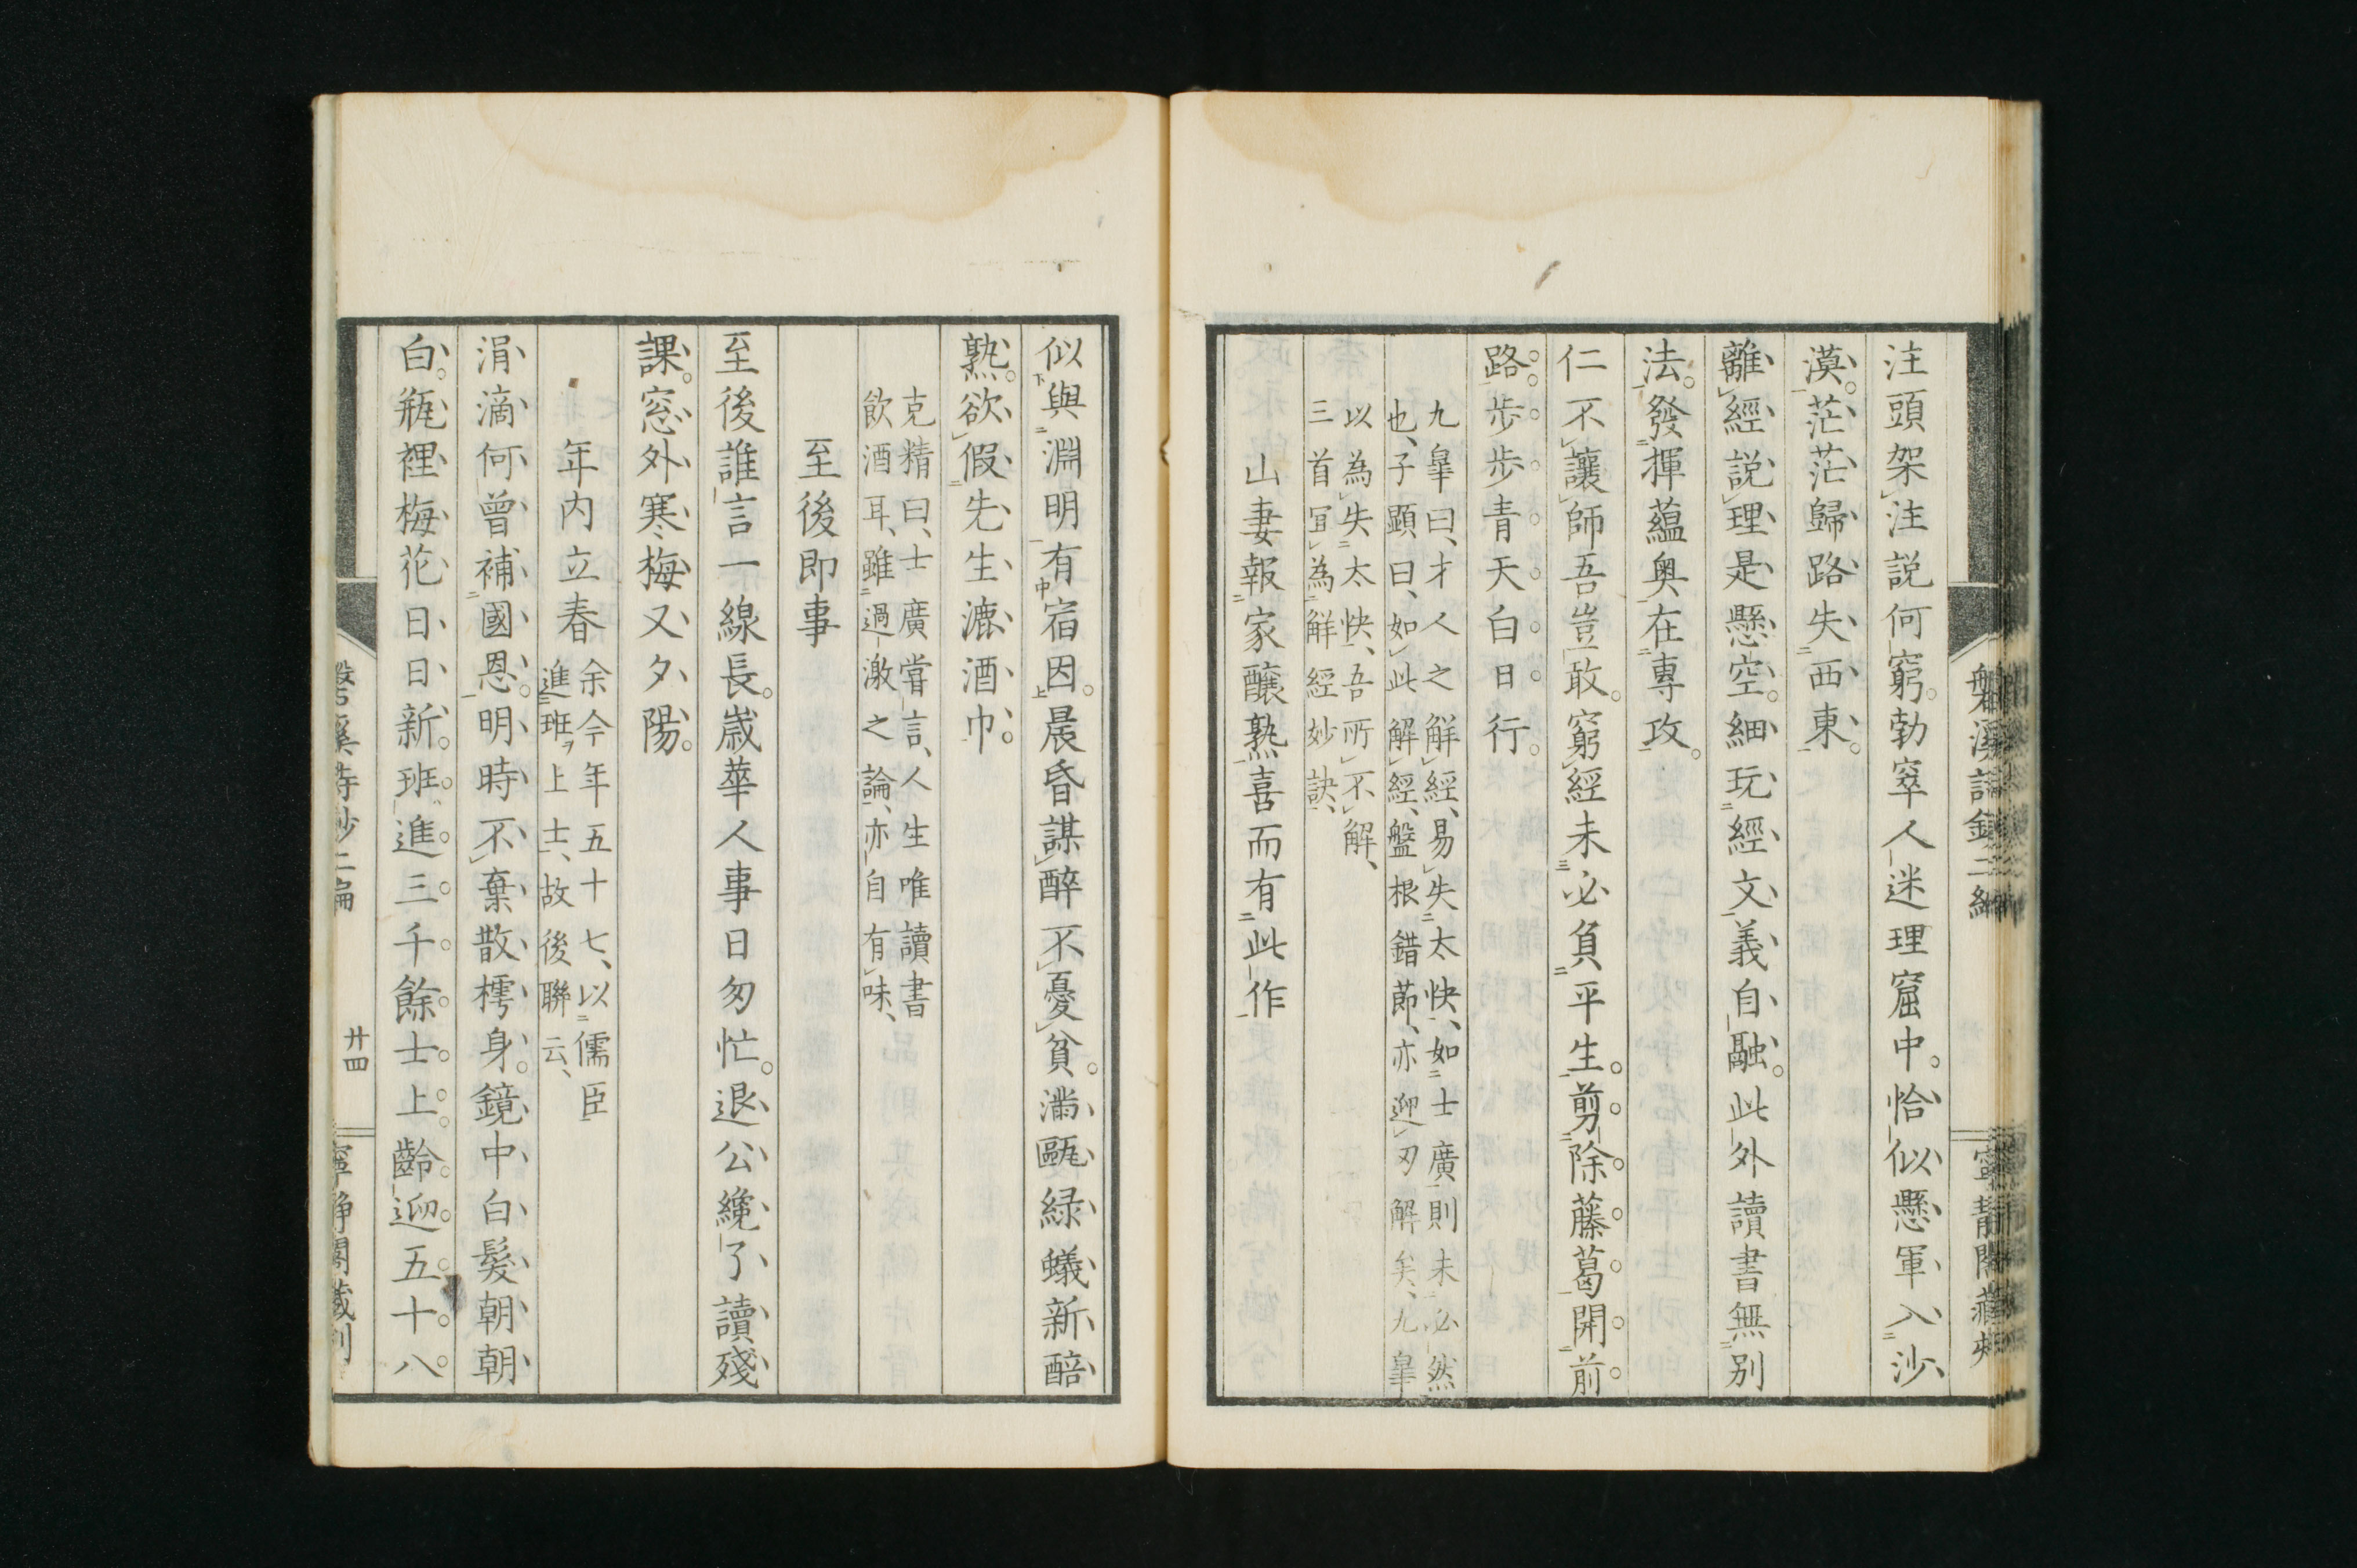 注頭架注説何窮勃窣人迷理窟中恰似懸軍入沙
漠茫茫歸路失西東
離經説理是懸空細玩經文義自融此外讀書無別
法發揮蘊奥在專攻
仁不讓師吾豈敢窮經未必負平生剪除藤葛開前
路歩歩青天白日行
九皐曰、才人之解經、易失太快、如士廣則未必然
也、子顕曰、如此解經、盤根錯節、亦迎刃解矣、九皐
以為失太快、吾所不解、
三首冝為解經妙訣、
山妻報家醸熟喜而有此作
似與淵明有宿因晨昏謀醉不憂貧滿甌緑蟻新醅
熟欲假先生漉酒巾
克精曰、士廣嘗言、人生唯讀書
飲酒耳、雖過激之論、亦自有味、
至後即事
至後誰言一線長歳華人事日匆忙退公纔了讀殘
課窓外寒梅又夕陽
年内立春
余今年五十七、以儒臣
進班ヲ上士、故後聯云、
涓滴何曾補國恩明時不棄散樗身鏡中白髪朝朝
白瓶裡梅花日日新班進三千餘士上齢迎五十八
磐溪詩鈔二編
廿四
寧静閣藏刻